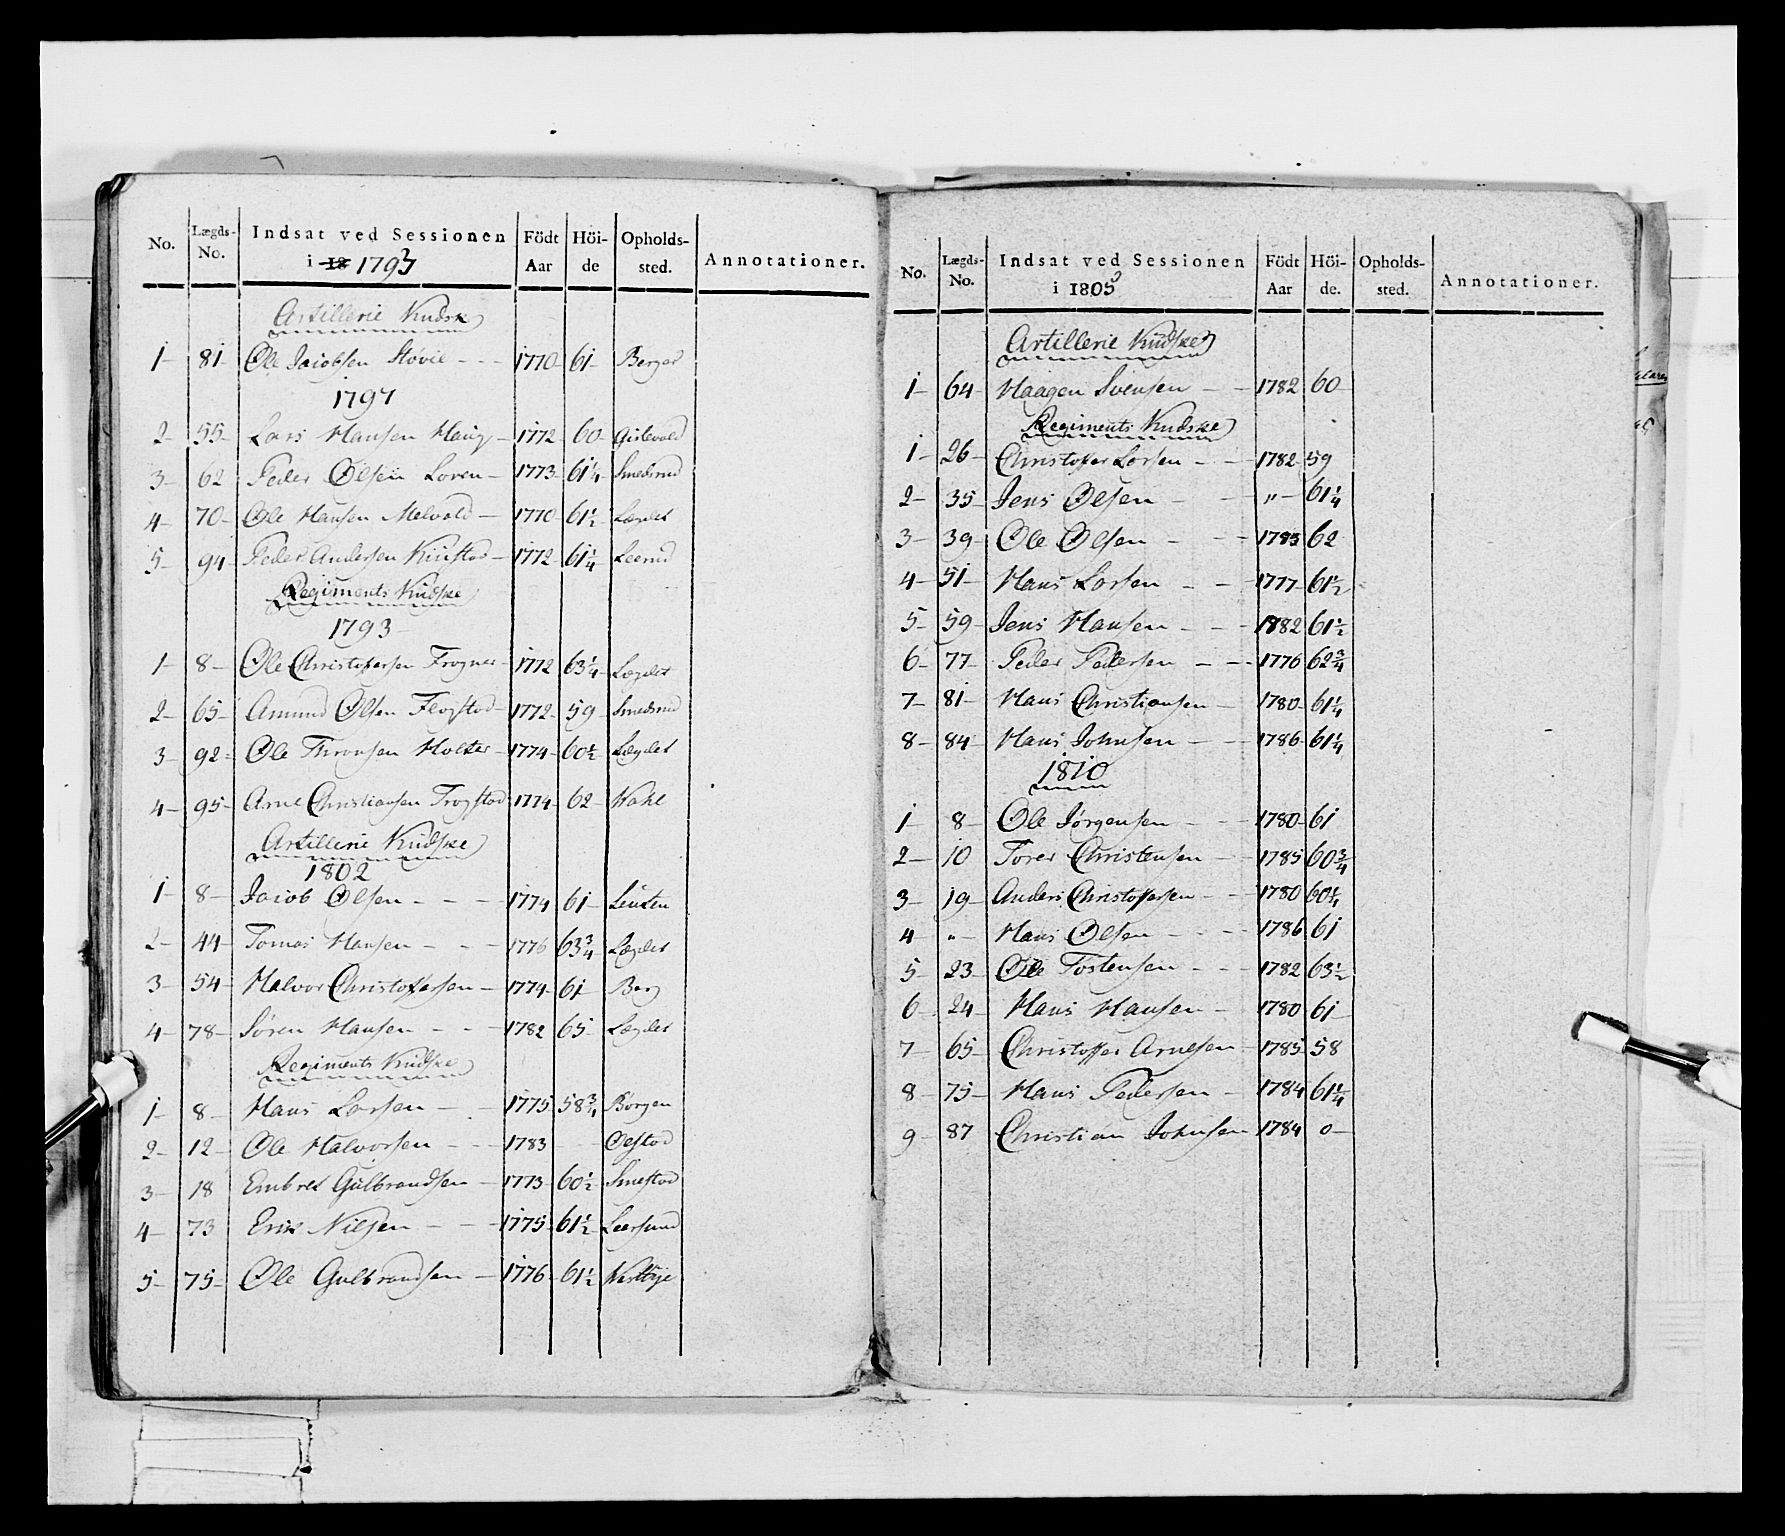 No. Lægds-No. Indsat ved Sessionen i 1793 Födt Aar Höi-de Opholds-sted. Annotationer.
Artillerie Kudske
1- 81- Ole Jacobsen Støvie - - - 1770- 61- Berger
1797
2- 55- Lars Hansen Haug - 1772 60- Gislevold
3- 62 Peder Olsen Loren - 1773- 61 1/4 Smedsrud
4- 70- Ole Hansen Melvold - 1770- 61 1/2 Lægdet
5- 94 Peder Andersen - 1772 61 1/4 Leerud
Regiments Kudske
1793
1- 8- Ole Christophersen Frogner - 1772 63 1/4 Lægdet
2- 65- Amund Olsen - 1772- 59- Smedsrud
3- 92- Ole Thronsen Holter - 1774- 60 1/2 Lægdet
4- 95- Arne Christiansen Frogstad 1774- 62-
Artillerie Kudske
1802
1- 8- Jacob Olsen - - - 1774 61-
2- 44- Tomas Hansen - - - 1776 63 3/4 Lægdet
3- 54- Halvor Christophersen - 1774- 61 Berg
4- 78- Søren Hansen - - - 1782 65- Lægdet
Regiments Kudske
1- 8- Hans Larsen - - 1775 58 3/4 Borgen
2- 12- Ole Halvorsen - - - 1783
3- 18 Embret Gulbrandsen - 1773- 60 1/2 Smestad
4- 73 Erik Nilsen - - - 1775- 61 1/2 Leersund
5- 75- Ole Gulbrandsen - 1776- 61 1/2
No. Lægds-No. Indsat ved Sessionen i 1803 Födt Aar Höi-de. Opholds-sted. Annotationer.
Artillerie Kudske
1- 64- Haagen Svensen - - 1782 60
Regiments Kudske
1- 26- Christoffer Larsen - - - 1782 59
2- 35 Jens Olsen - - " - 61 1/4
3- 39- Ole Olsen - - - 1785 62
4- 51- Hans Larsen - - - 1777- 61 1/2
5- 59- Jens Hansen - - - 1782 61 1/2
6- 77- Peder Pedersen - - - 1776 62 3/4
7- 81- Hans Christiansen - 1780- 61 1/4
8- 84- Hans Johnsen - - - 1786- 61 1/4
1810
1- 8- Ole Jørgensen - - - 1780- 61
2- 10 Torer Christensen - - 1785 60 3/4
3- 19- Anders Christophersen - - 1780 60 1/4
4 " - Hans Olsen - - - 1786 61
5- 23- Ole Tostensen - - - 1782 63 1/2
6 24- Hans Hansen - 1780 61
7- 65- Christoffer Arnesen - 1785 58
8- 75- Hans Pedersen - 1784 61 1/4
9- 87 Christian Johnsen 1784 0-